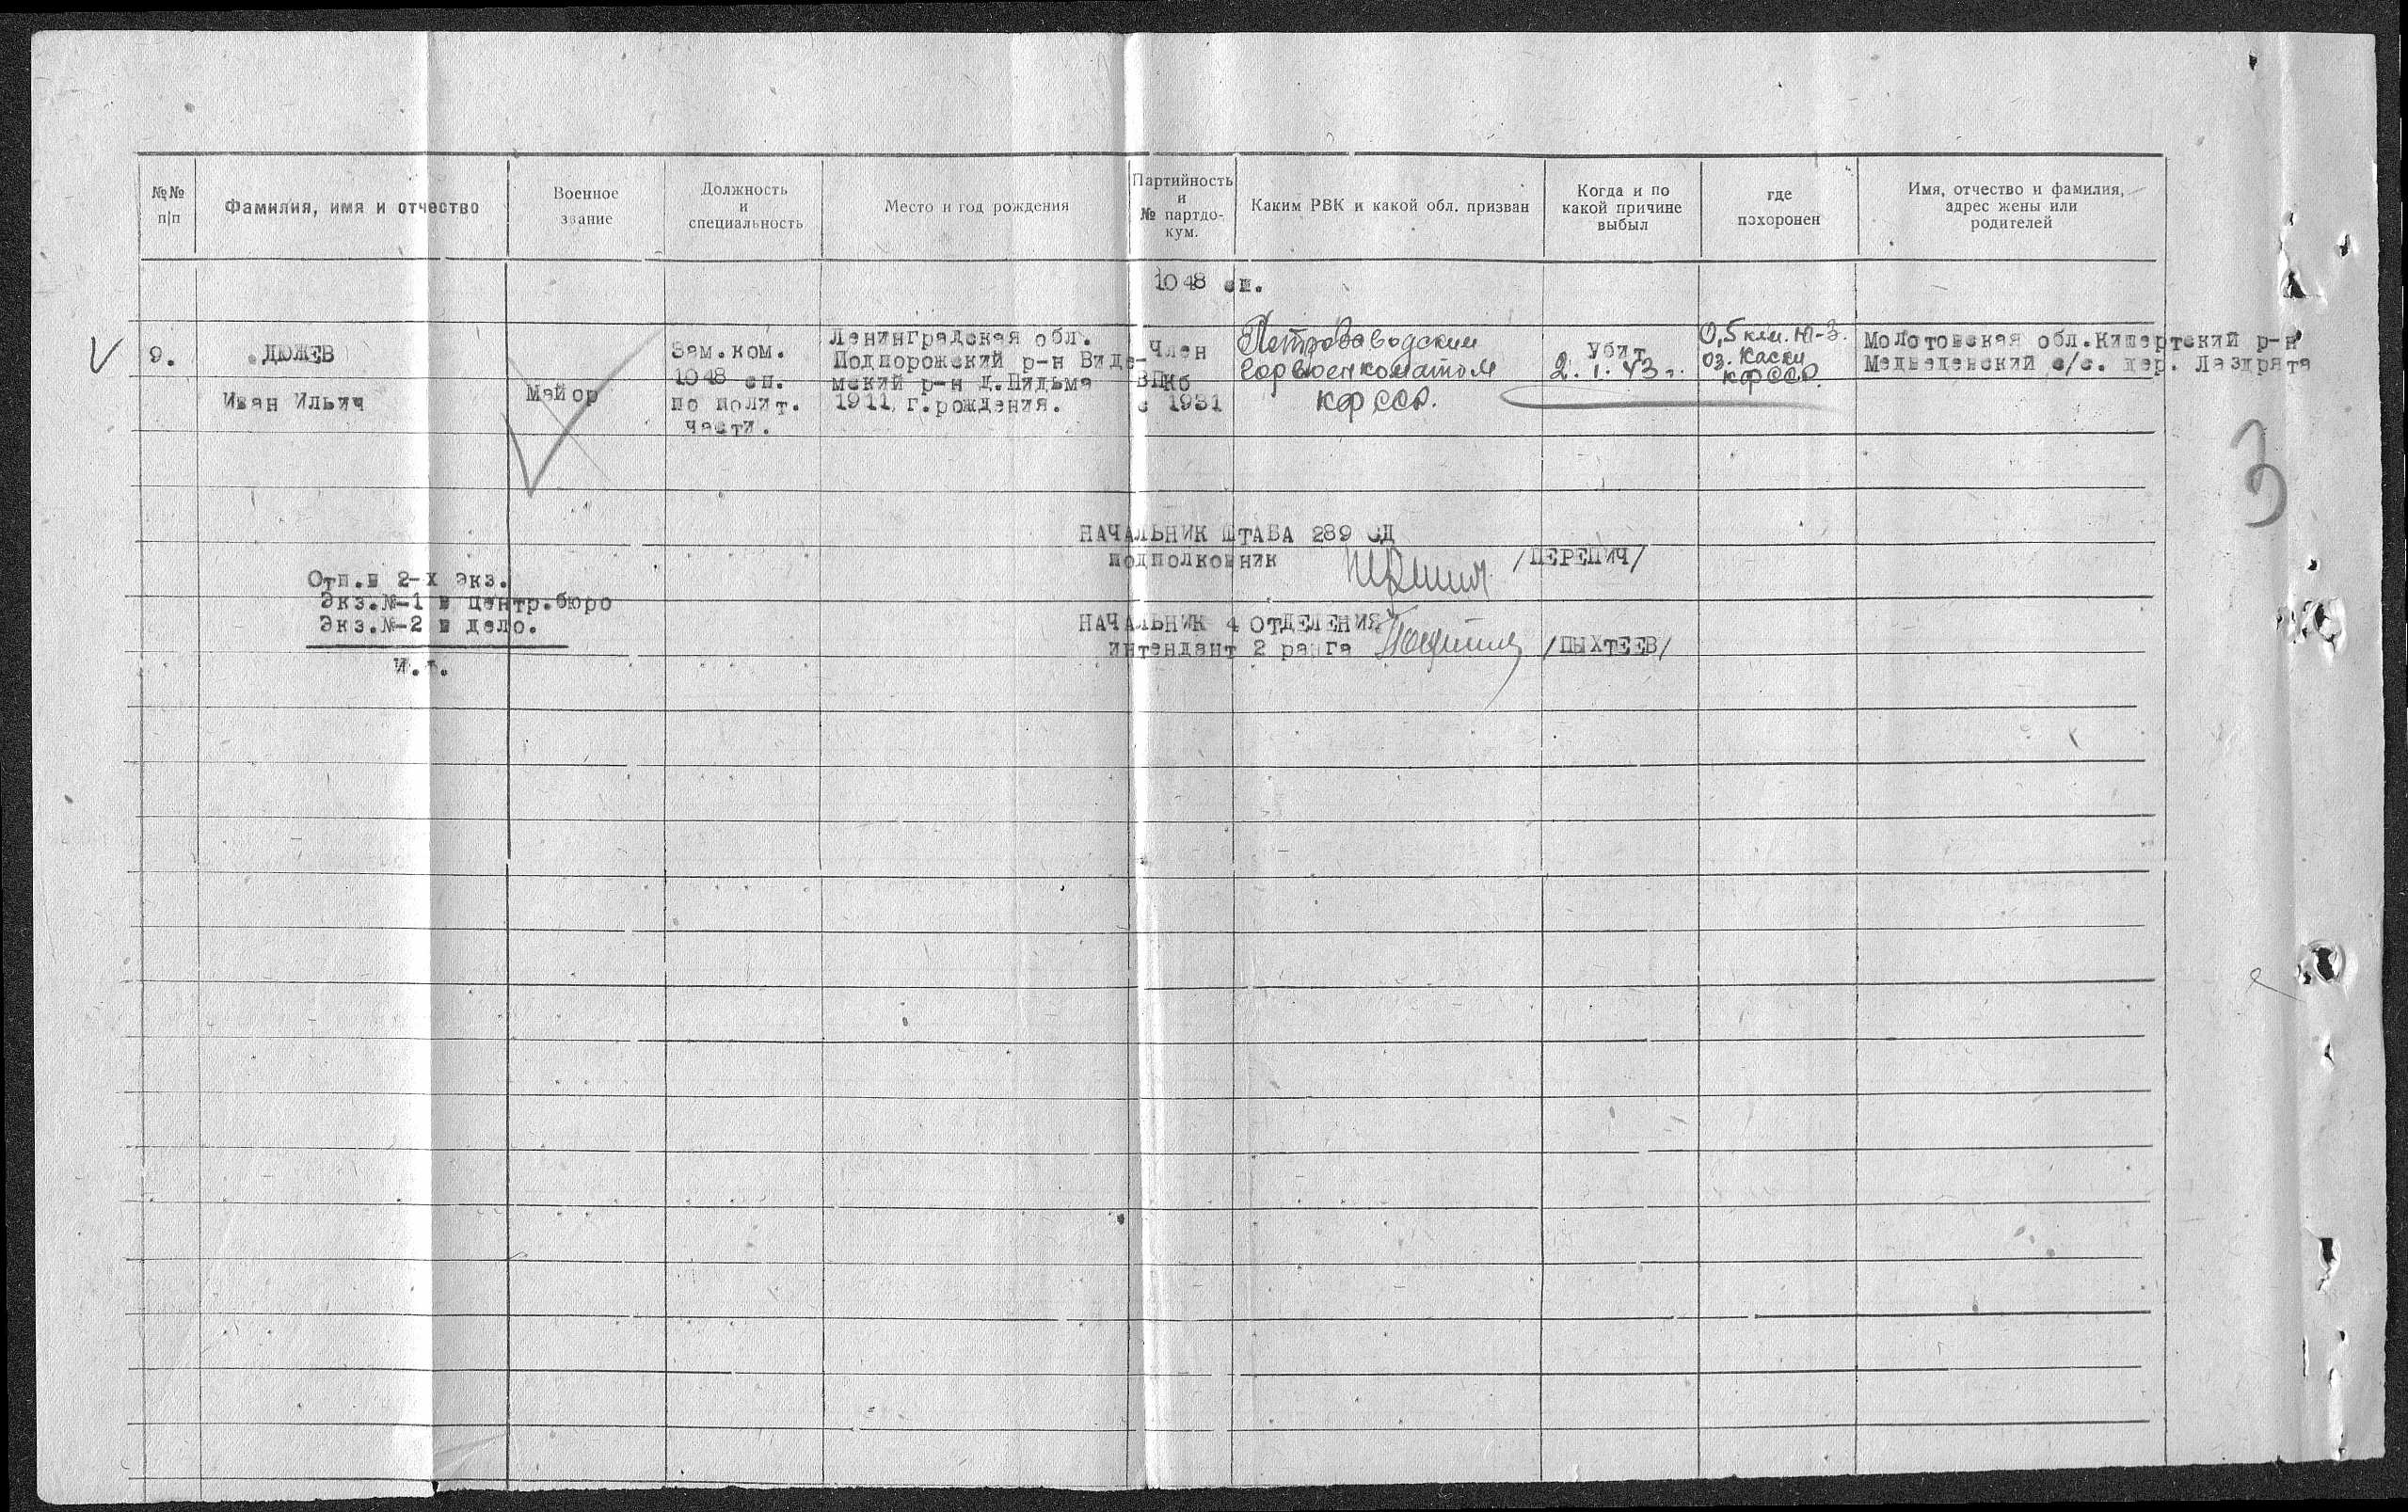 №№
п|п
Фамилия, имя и отчество
Военное
звание
Должность
и
специальность
Место и год рождения
Партийность
и
№ партдо-
кум.
Каким РВК и какой обл. призван
Когда и по
какой причине
выбыл
где
похоронен
Имя, отчество и фамилия,
адрес жены или
родителей
1048 сп.
9.
ДЮЖЕВ
Иван Ильич
Майор
Зам.ком.
1048 сп.
по полит.
части.
Ленинградская обл.
Подпорожский р-н Виде-
мский р-н д.Пидьма
1911 г.рождения.
Член
ВПКб
с 1931
Петрозаводским
Горвоенкоматом
КФССР.
Убит
2.1.43г.
0,5 клм. Ю-З.
оз. Каски
КФССР.
Молотовская обл.Кишертский р-н
Медведевский с/с. дер. Лаздрята
3
НАЧАЛЬНИК ШТАБА 289 СД
подполковник /ПЕРЕПИЧ/
Отп.в 2-х экз.
Экз.№-1 в центр.бюро
Экз.№-2 в дело.
НАЧАЛЬНИК 4 ОТДЕЛЕНИЯ
интендант 2 ранга /ПЫХТЕЕВ/